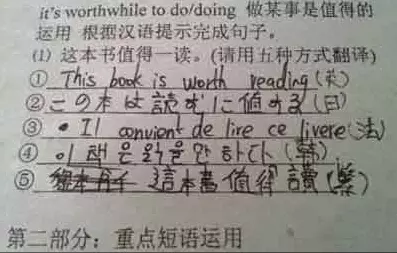 it's worthwhile to do/doing 做某事是值得的
运用 根据汉语提示完成句子。
(1) 这本书值得一读。(请用五种方式翻译)
① This book is worth reading (英)
② この本は読むに値する (日)
③ • Il convient de lire ce livere (法)
④ 이 책은 읽을만하다 (韩)
⑤ 這本書值得讀 (繁)
第二部分：重点短语运用